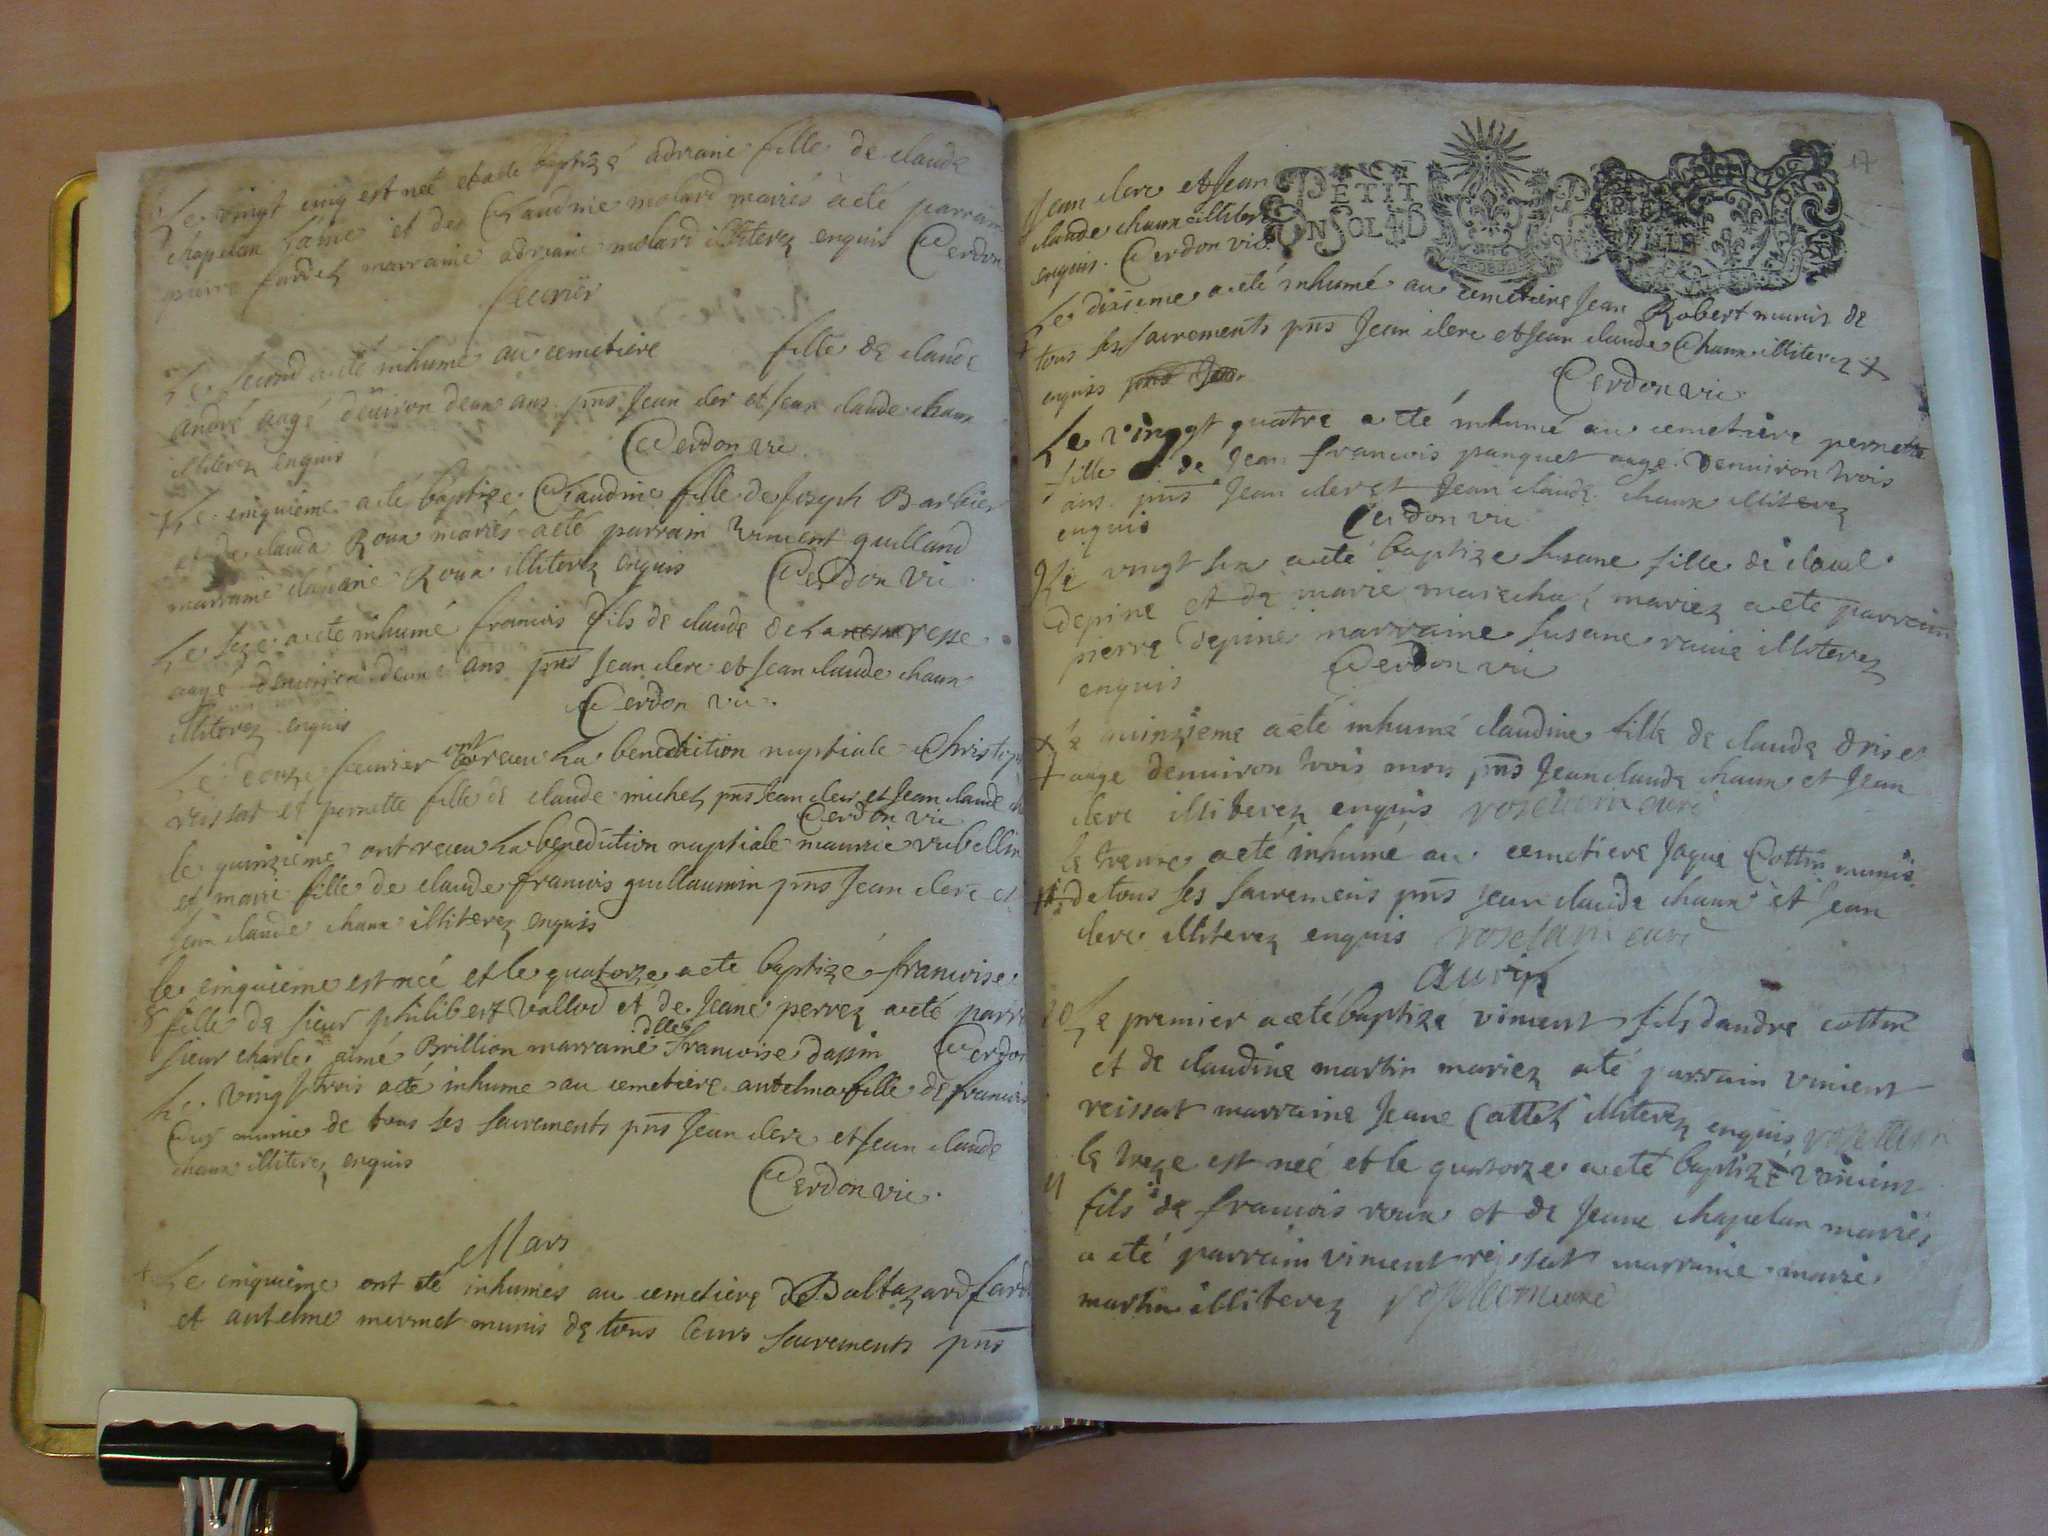 Le vingt cinq est neé et a eté baptizé adriane fille de claude
chapelan laine et de Claudine molard mariés a eté parrain
pierre marraine adriane molard illiterez enquis Cerdon
feurier
Le second a eté inhumé au cemetiere fille de claude
andré aagé deuiron deux ans pnts Jean clerc et Jean claude chaux
illiterez enquis Cerdon vic.
Le cinquieme a eté baptize Claudine fille de Joseph Barbier
et de clauda Roux mariés a eté parrain vincent guilland
marraine Roux illiterez enquis Cerdon vic
Le seze a eté inhumé francois fils de claude de
aagé denuiron deux ans pnts Jean clerc et Jean claude chaux
illiterez enquis Cerdon vic.
Le feurier ont receu la benediction nuptiale
reissat et pernette fille de claude michel pnts Jean clerc et Jean claude
Cerdon vic
le quinzieme ont receu la benediction nuptiale maurice rubellin
et marie fille de claude francois guillaumin pnts Jean clerc et
Jean claude chaux illiterez enquis
le cinquieme est neé et le quatorze a eté baptizé francoise
8 fille de sieur philibert vallod et de Jeane perrez a eté parr
sieur charle aimé Brillion marraine dlle francoise dapin Cerdon
Le vingt trois a eté inhumé au cemetiere antelma fille de francois
munie de tous ses sacrements pnts Jean clerc et Jean claude
chaux illiterez enquis
Cerdon vic.
Mars
Le cinquieme ont eté inhumés au cemetiere Baltazard
et antelme mermet munis de tous leurs sacrements pnts
17
PETIT
ON SOL D
Jean clerc et Jean
claude chaux illiterez
enquis. Cerdon vic
Le dixieme a eté inhumé au cemetiere Jean Robert munis de
tous ses sacrements pnts Jean clerc et Jean claude Chaux illiterez
enquis
Cerdon vic
Le vingt quatre a eté inhumé au cemetiere pernette
fille de Jean francois panquet aagé denuiron trois
ans pnts Jean clerc et Jean claude chaux illiterez
enquis Cerdon vic
Le vingt six a eté baptize susane fille de claude
depine et de marie marechal mariez a eté parrain
pierre depine marraine susane illiterez
enquis Cerdon vic
Le quinzieme a eté inhumé claudine fille de claude
aage denuiron trois mois pnts Jean claude chaux et Jean
clerc illiterez enquis curé
le trente a eté inhumé au cemetiere Jaque Cottin munis
de tous ses sacremens pnts Jean claude chaux et Jean
clerc illiterez enquis curé
Auril
10 Le premier a eté baptize vincent fils dandre cottin
et de claudine martin mariez a eté parrain vincent
reissat marraine Jeane Cottel illiterez enquis
le treze est neé et le quatorze a eté baptizé vincent
11 fils de francois roux et de Jeane chapelan mariés
a eté parrain vincent reissat marraine marie
martin illiterez curé